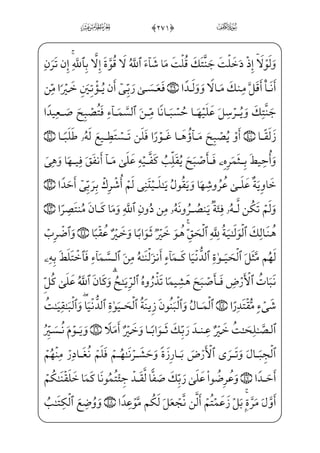 ﴿٢٧١﴾
وَلَوْلَآ إِذْ دَخَلْتَ جَنَّتَكَ قُلْتَ مَا شَآءَ ٱللَّهُ لَا قُوَّةَ إِلَّا بِٱللَّهِۚ إِن تَرَنِ
أَنَا۠ أَقَلَّ مِنكَ مَالًا وَوَلَدًا ۝٣٩ فَعَسَىٰ رَبِّىٓ أَن يُؤْتِيَنِ خَيْرًا مِّن
جَنَّتِكَ وَيُرْسِلَ عَلَيْهَا حُسْبَانًا مِّنَ ٱلسَّمَآءِ فَتُصْبِحَ صَعِيدًا
زَلَقًا ۝٤٠ أَوْ يُصْبِحَ مَآؤُهَا غَوْرًا فَلَن تَسْتَطِيعَ لَهُۥ طَلَبًا
۝٤١ وَأُحِيطَ بِثَمَرِهِۦ فَأَصْبَحَ يُقَلِّبُ كَفَّيْهِ عَلَىٰ مَآ أَنفَقَ فِيهَا وَهِىَ
خَاوِيَةٌ عَلَىٰ عُرُوشِهَا وَيَقُولُ يَٰلَيْتَنِى لَمْ أُشْرِكْ بِرَبِّىٓ أَحَدًا ۝٤٢
وَلَمْ تَكُن لَّهُۥ فِئَةٌ يَنصُرُونَهُۥ مِن دُونِ ٱللَّهِ وَمَا كَانَ مُنتَصِرًا
۝٤٣ هُنَالِكَ ٱلْوَلَٰيَةُ لِلَّهِ ٱلْحَقِّۚ هُوَ خَيْرٌ ثَوَابًا وَخَيْرٌ عُقْبًا ۝٤٤ وَٱضْرِبْ
لَهُم مَّثَلَ ٱلْحَيَوٰةِ ٱلدُّنْيَا كَمَآءٍ أَنزَلْنَٰهُ مِنَ ٱلسَّمَآءِ فَٱخْتَلَطَ بِهِۦ
نَبَاتُ ٱلْأَرْضِ فَأَصْبَحَ هَشِيمًا تَذْرُوهُ ٱلرِّيَٰحُۗ وَكَانَ ٱللَّهُ عَلَىٰ كُلِّ
شَىْءٍ مُّقْتَدِرًا ۝٤٥ ٱلْمَالُ وَٱلْبَنُونَ زِينَةُ ٱلْحَيَوٰةِ ٱلدُّنْيَاۖ وَٱلْبَٰقِيَٰتُ
ٱلصَّٰلِحَٰتُ خَيْرٌ عِندَ رَبِّكَ ثَوَابًا وَخَيْرٌ أَمَلًا ۝٤٦ وَيَوْمَ نُسَيِّرُ
ٱلْجِبَالَ وَتَرَى ٱلْأَرْضَ بَارِزَةً وَحَشَرْنَٰهُمْ فَلَمْ نُغَادِرْ مِنْهُمْ
أَحَدًا ۝٤٧ وَعُرِضُوا۟ عَلَىٰ رَبِّكَ صَفًّا لَّقَدْ جِئْتُمُونَا كَمَا خَلَقْنَٰكُمْ
أَوَّلَ مَرَّةٍۭۚ بَلْ زَعَمْتُمْ أَلَّن نَّجْعَلَ لَكُم مَّوْعِدًا ۝٤٨ وَوُضِعَ ٱلْكِتَٰبُ